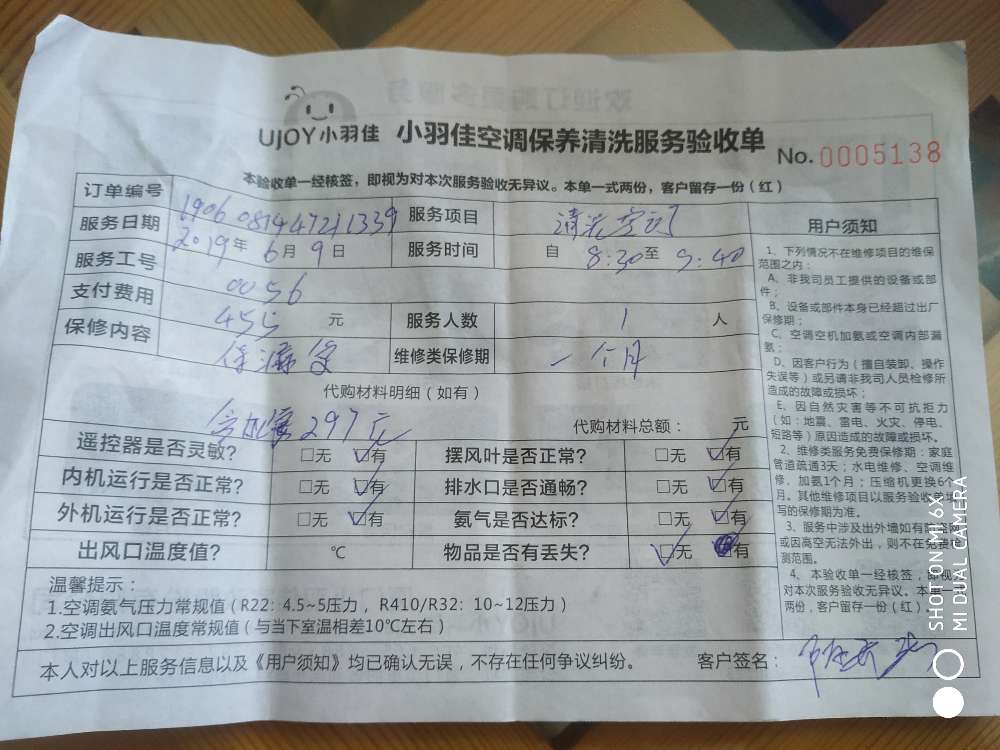 UJOY小羽佳 小羽佳空调保养清洗服务验收单
No. 0005138
本验收单一经核签，即视为对本次服务验收无异议。本单一式两份，客户留存一份（红）
订单编号 1906 081447211339 服务项目 清洗空调
服务日期 2019年6月9日 服务时间 自 8:30至 9:40
服务工号 0056
支付费用 455 元 服务人数 1 人
保修内容 维修类保修期 一个月
代购材料明细（如有）
297元 代购材料总额： 元
遥控器是否灵敏? □无 ☑有 摆风叶是否正常? □无 ☑有
内机运行是否正常? □无 ☑有 排水口是否通畅? □无 ☑有
外机运行是否正常? □无 ☑有 氨气是否达标? □无 ☑有
出风口温度值? ℃ 物品是否有丢失? ☑无 有
温馨提示：
1.空调氨气压力常规值（R22：4.5~5压力，R410/R32：10~12压力）
2.空调出风口温度常规值（与当下室温相差10℃左右）
本人对以上服务信息以及《用户须知》均已确认无误，不存在任何争议纠纷。 客户签名：
用户须知
1、下列情况不在维修项目的维保
范围之内：
A、非我司员工提供的设备或部
件；
B、设备或部件本身已经超过出厂
保修期；
C、空调空机加氨或空调内部漏
氨；
D、因客户行为（擅自装卸、操作
失误等）或另请非我司人员检修所
造成的故障或损坏；
E、因自然灾害等不可抗拒力
（如：地震、雷电、火灾、停电、
短路等）原因造成的故障或损坏。
2、维修类服务免费保修期：家庭
管道疏通3天；水电维修、空调维
修、加氨1个月；压缩机更换6个
月。其他维修项目以服务验收单填
写的保修期为准。
3、服务中涉及出外墙如有防盗网
或因高空无法外出，则不在免费检
测范围。
4、本验收单一经核签，即视为
对本次服务验收无异议。本单一式
两份，客户留存一份（红）。
SHOT ON MI 6X
MI DUAL CAMERA